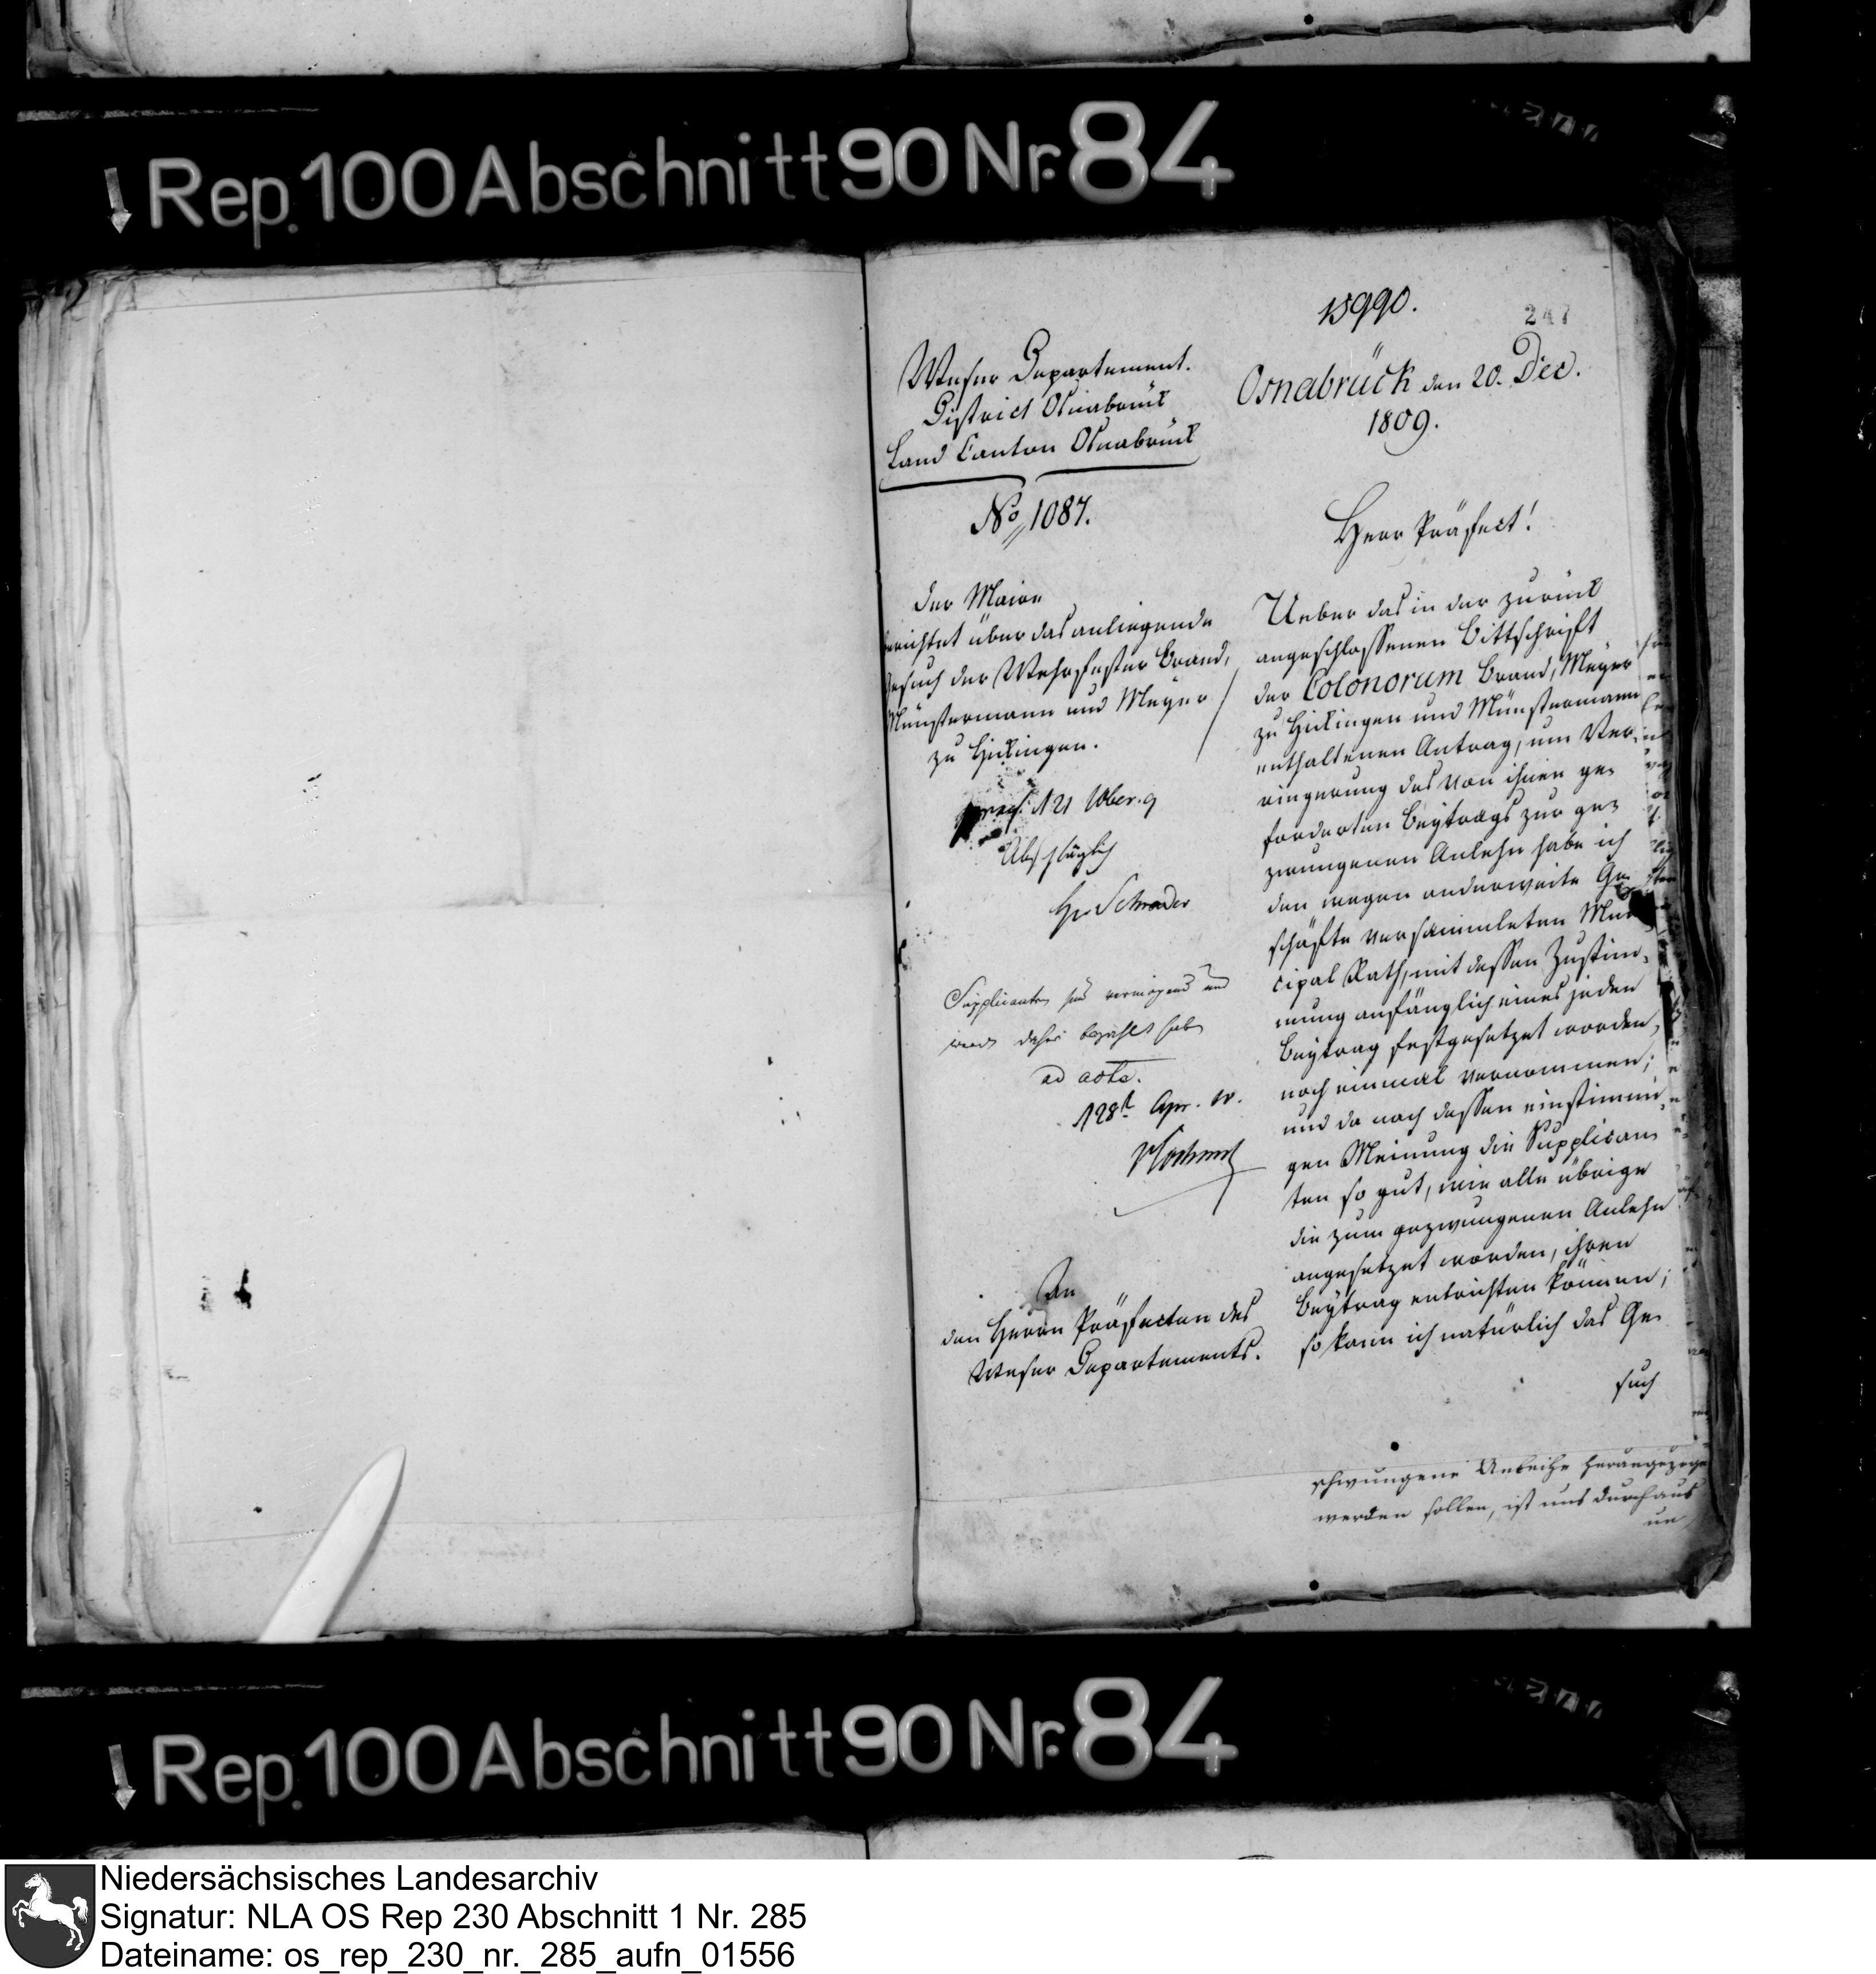 Rep. 100 Abschnitt 90 Nr. 84
15990.
247
Weser Departement.
District Osnabrück
Land Canton Osnabrück
No 1087.
Osnabrück den 20. Dec.
1809.
Herr Präfect!
Der Maire
berichtet über das anliegende
Gesuch der Wehrfester Brand,
Münstermann und Meyer
zu Hickingen.
präs. 21 Xber. 9
Abschläglich
Schrader
Supplicanten sind vermögend und
werden daher bezahlt haben
ad acta.
28t Apr. 10.
An
den Herrn Präfecten des
Weser Departements.
Ueber das in der zurück
angeschlossenen Bittschrift
der Colonorum Brand, Meyer
zu Hickingen und Münstermann
enthaltenen Antrag, um Ver-
ringerung des von ihnen ge-
forderten Beytrags zur ge-
zwungenen Anlehn habe ich
den wegen anderweite Ge-
schäfte versammleten Muni
cipal Rath, mit dessen Zustim-
mung anfänglich eines jeden
Beytrag festgesetzet worden,
noch einmal vernommen;
und da nach dessen einstimmi-
gen Meinung die Supplican
ten so gut, wie alle übrige
die zum gezwungenen Anlehn
angesetzet worden, ihren
Beytrag entrichten können;
so kann ich natürlich das Ge-
such
schwungene Anleihe herangezoge
werden sollen, ist uns durchaus
un
Rep. 100 Abschnitt 90 Nr. 84
Niedersächsisches Landesarchiv
Signatur: NLA OS Rep 230 Abschnitt 1 Nr. 285
Dateiname: os_rep_230_nr._285_aufn_01556